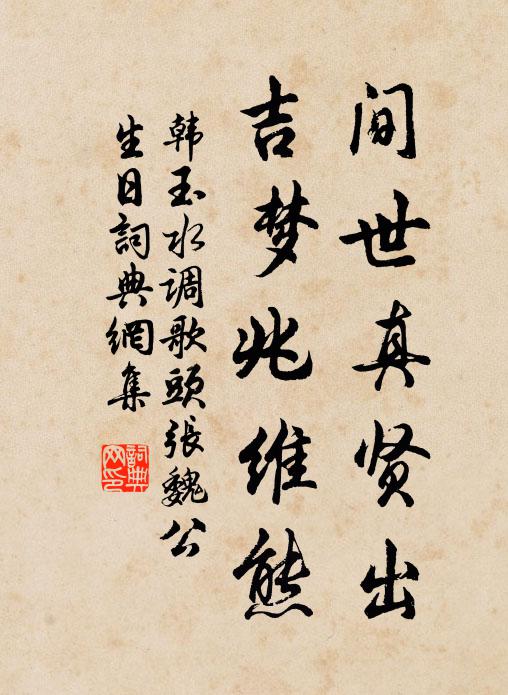 间世真贤出
吉梦兆维熊
韩玉水调歌頭張魏公
生日詞典網集
詞典网印